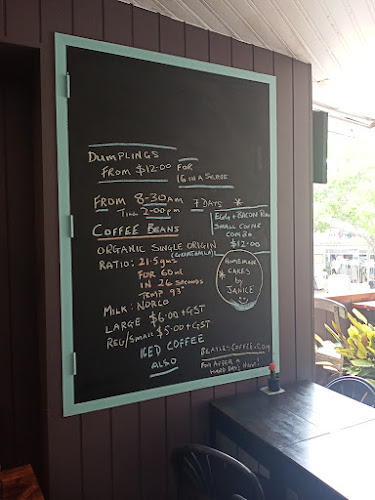 DUMPLINGS
FROM $12-00 FOR
16 IN A SERVE
FROM 8-30am 7 DAYS *
TILL 2-00pm
EGG + BACON ROLL
SMALL COFFEE
COMBO
$12-00
COFFEE BEANS
ORGANIC SINGLE ORIGIN
(GUATEMALA)
RATIO: 21-5gms
FOR 60ml
IN 26 SECONDS
TEMP 93°
HOMEMADE
CAKES
by
JANICE
MILK: NORCO
LARGE $6-00+GST
REG/SMALL $5-00+GST
ICED COFFEE
ALSO
BEATLES-COFFEE.COM
FOR AFTER A
HARD DAYS NIGHT!